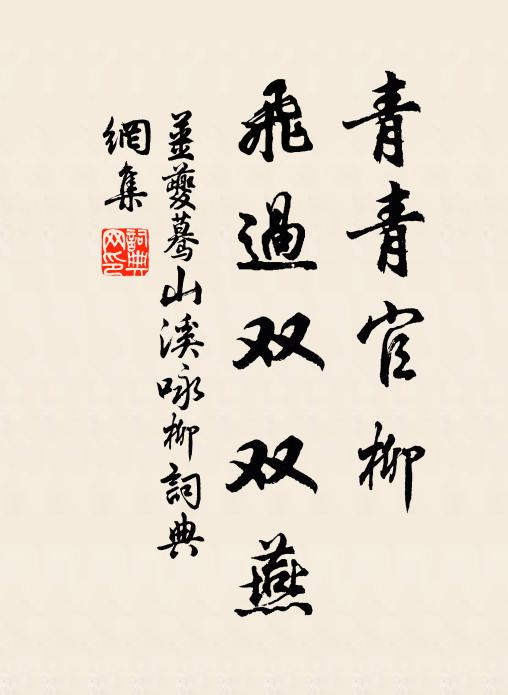 青青官柳
飛過双双燕
薑夔蓦山溪咏柳詞典
網集
詞典网印